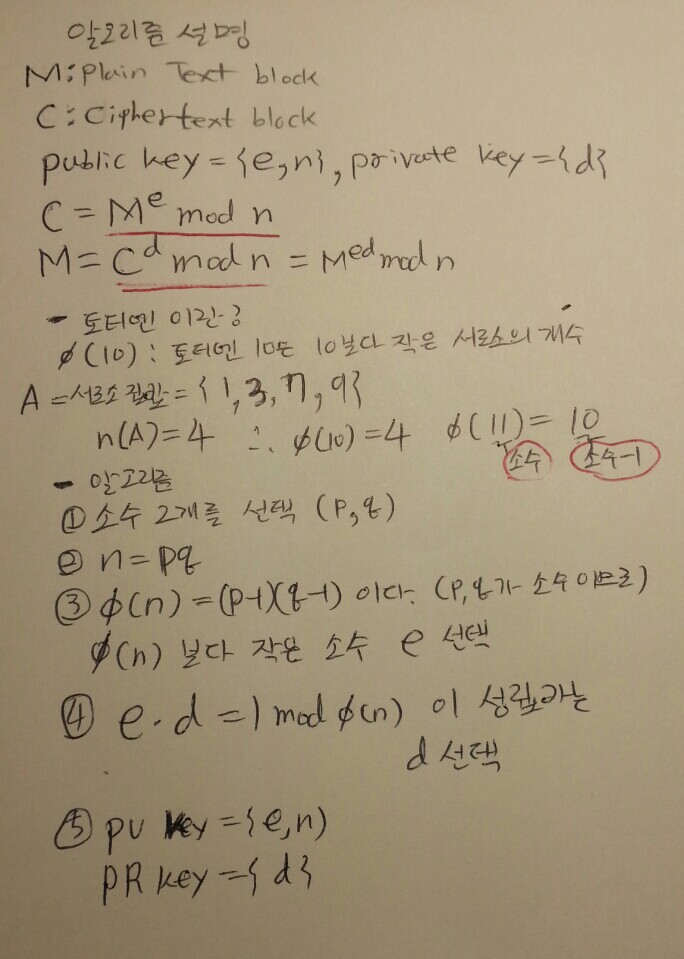 알고리즘 설명
M: plain Text block
C: Ciphertext block
public key = {e, n}, private key = {d}
C = M^e mod n
M = C^d mod n = M^ed mod n
- 토터엔 이란?
ø(10) : 토터엔 10은 10보다 작은 서로소의 개수
A = 서로소 집합 = {1, 3, 7, 9}
n(A) = 4 ∴ ø(10) = 4 ø(11) = 10
소수 소수-1
- 알고리즘
① 소수 2개를 선택 (p, q)
② n = pq
③ ø(n) = (p-1)(q-1) 이다. (p, q가 소수 이므로)
ø(n) 보다 작은 소수 e 선택
④ e · d = 1 mod ø(n) 이 성립하는
d 선택
⑤ PU key = {e, n)
PR key = {d}